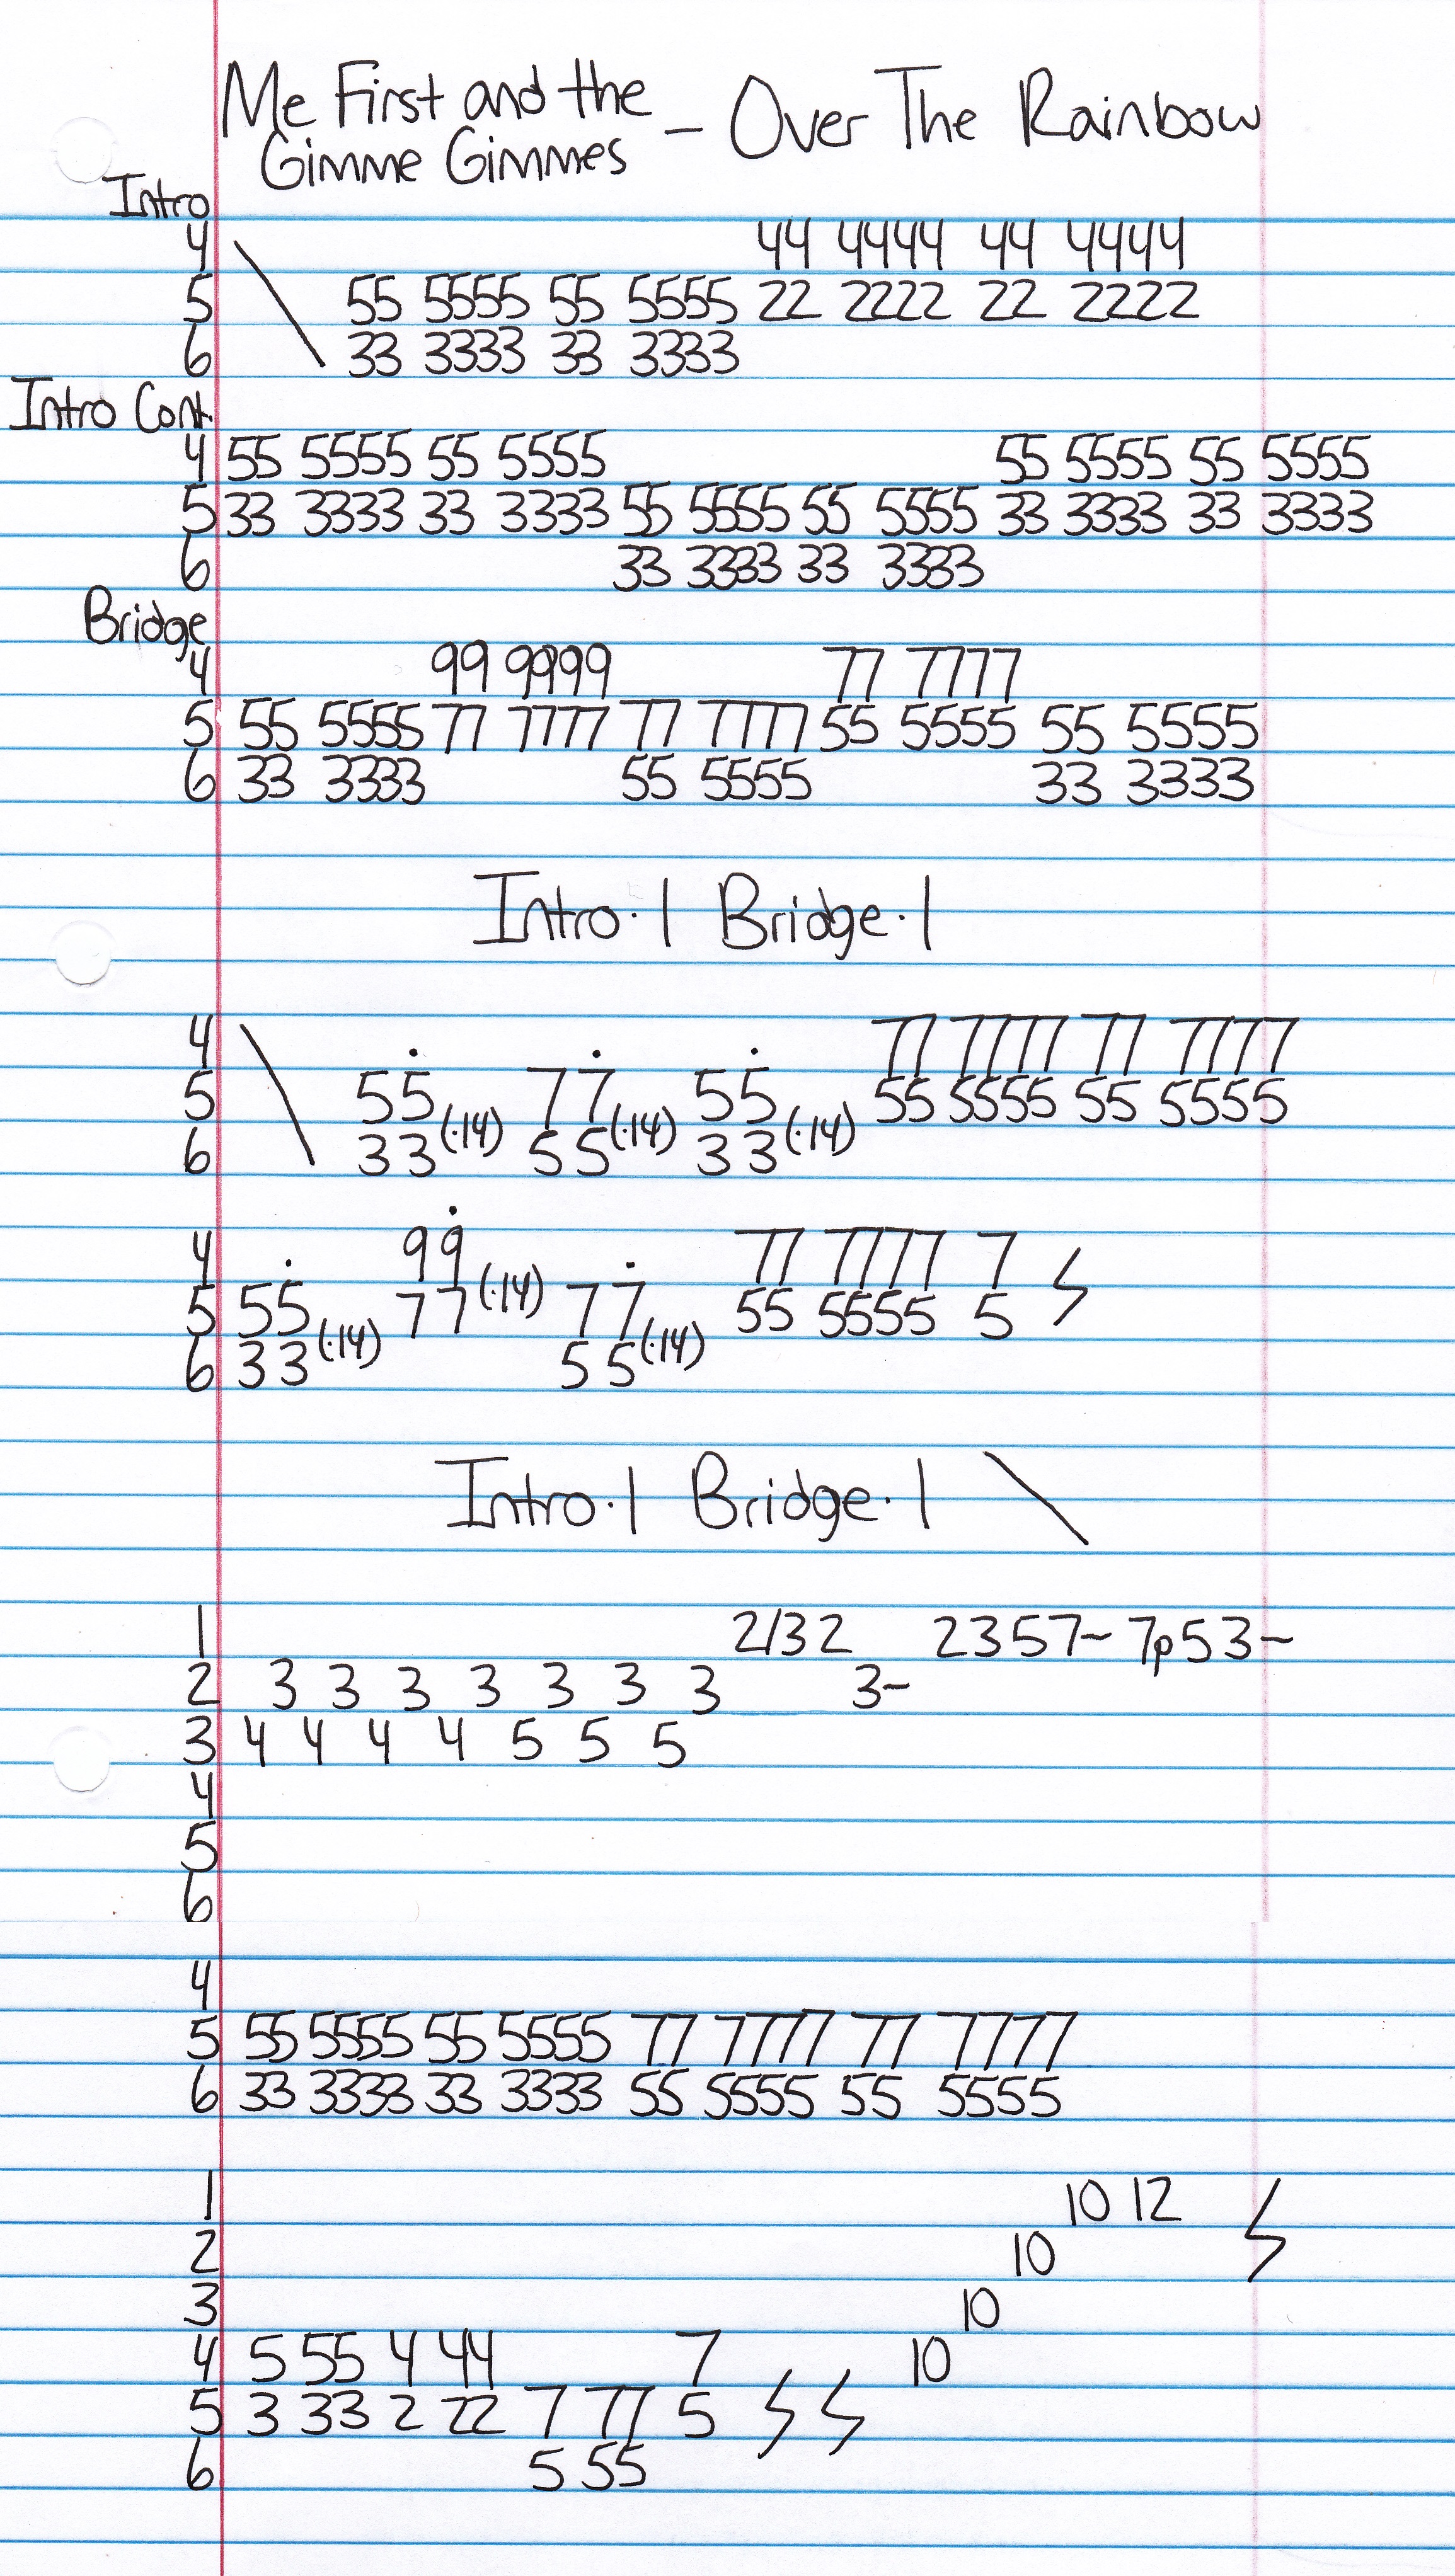 Me First and the
Gimme Gimmes - Over The Rainbow
Intro
4 \ 44 4444 44 4444
5 55 5555 55 5555 22 2222 22 2222
6 33 3333 33 3333
Intro Cont.
4 55 5555 55 5555 55 5555 55 5555
5 33 3333 33 3333 55 5555 55 5555 33 3333 33 3333
6 33 3333 33 3333
Bridge
4 99 9999 77 7777
5 55 5555 77 7777 77 7777 55 5555 55 5555
6 33 3333 55 5555 33 3333
Intro·1 Bridge·1
4 \ 77 7777 77 7777
5 55 77 55 55 5555 55 5555
6 33(·14) 55(·14) 33(·14)
4 99 77 7777 7
5 55 77(·14) 77 55 5555 5
6 33(·14) 55(·14)
Intro·1 Bridge·1 \
1 2/32 2357~ 7p53~
2 3 3 3 3 3 3 3 3~
3 4 4 4 4 5 5 5
4
5
6
4
5 55 5555 55 5555 77 7777 77 7777
6 33 3333 33 3333 55 5555 55 5555
1 10 12
2 10
3 10
4 5 55 4 44 7 10
5 3 33 2 22 7 77 5
6 5 55